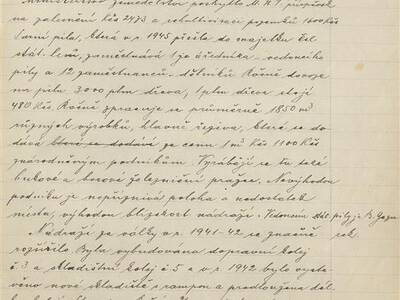 Ministerstvo zemědělství poskytlo M.N.V. příspěvek
na zalesnění Kčs 2473 a rekultivaci pozemků 1600 Kčs
Parní pila, která v r. 1945 přešla do majetku čsl.
stát. lesů, zaměstnává 1 úředníka - vedoucího
pily a 12 zaměstnanců - dělníků. Ročně dovoze
na pilu 3000 plm dřeva, 1 plm dřeva stojí
480 Kčs. Ročně zpracuje se průměrně 1850 m³
různých výrobků, hlavně řeziva, které se do-
dává které se dodává za cenu 1 m³ 1100 Kčs
znárodněným podnikům. Vyrábějí se tu také
bukové a borové železniční pražce. Nevýhodou
podniku je nepříznivá poloha a nedostatek
místa, výhodou blízkost nádraží. Vedoucím stát. pily je B.
Nádraží za války v r. 1941-42 se značně rok.
rozšířilo. Byla vybudována dopravní kolej
č. 3 a skladištní kolej č. 5 a v r. 1942 bylo vysta-
věno nové skladiště s rampou a prodloužena